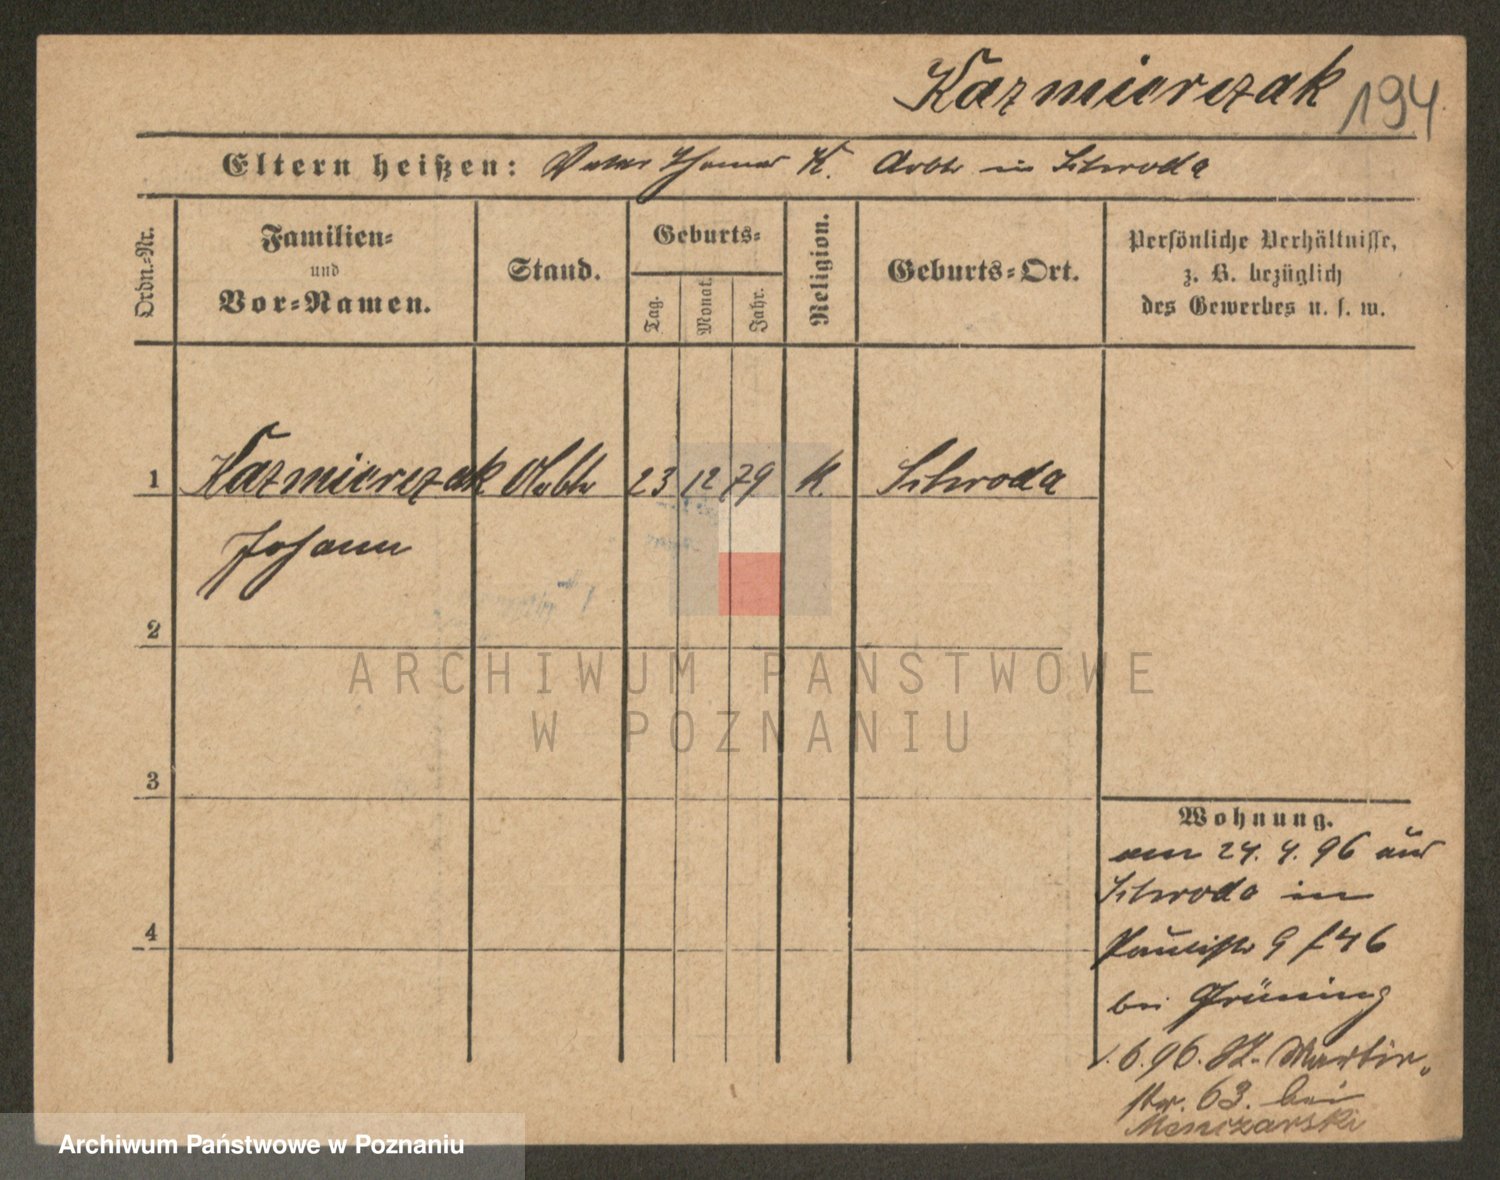 Kazmierczak 194
Eltern heißen: Vater Thomas K. Arbtr in Schroda
Ordn.-Nr.
Familien-
und
Vor-Namen.
Stand.
Geburts-
Tag.
Monat.
Jahr.
Religion.
Geburts-Ort.
Persönliche Verhältnisse,
z. B. bezüglich
des Gewerbes u. s. w.
1 Kazmierczak Arbtr 23 12 79 K. Schroda
Johann
2
3
4
Wohnung.
am 24. 4. 96 aus
Schroda in
Paulistr 9
bei Grüning
.6.96. St. Martin-
str. 63. bei
ARCHIWUM PAŃSTWOWE
W POZNANIU
Archiwum Państwowe w Poznaniu